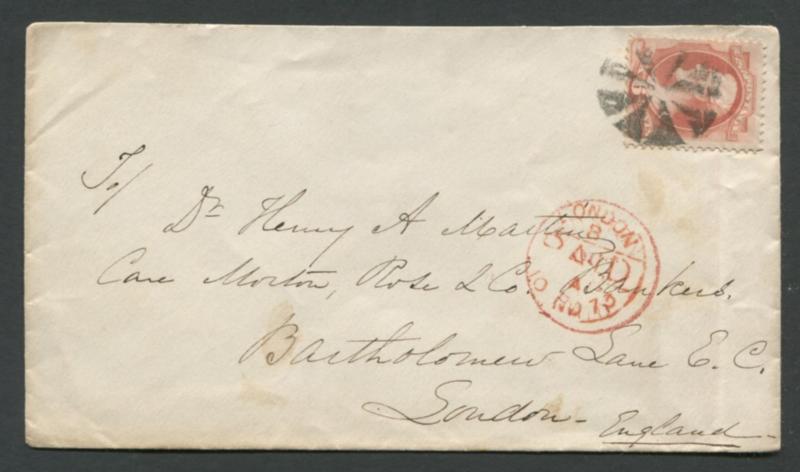 To/
Dr Henry A Martin
Care Morton, Rose & Co. Bankers.
Bartholomew Lane E. C.
London -
England -
LONDON
PAID
73